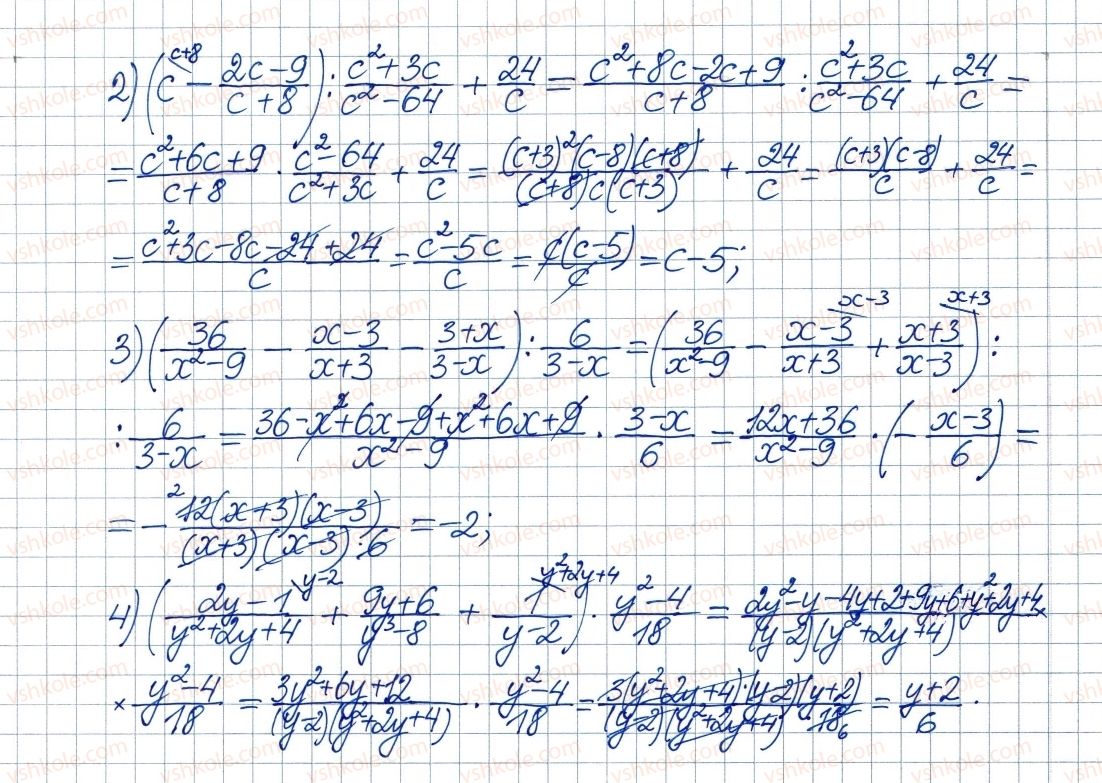 2) (c - (2c-9)/(c+8)) : (c²+3c)/(c²-64) + 24/c = (c²+8c-2c+9)/(c+8) : (c²+3c)/(c²-64) + 24/c =
= (c²+6c+9)/(c+8) · (c²-64)/(c²+3c) + 24/c = ((c+3)²(c-8)(c+8))/((c+8)c(c+3)) + 24/c = ((c+3)(c-8))/c + 24/c =
= (c²+3c-8c-24+24)/c = (c²-5c)/c = (c(c-5))/c = c-5;
3) (36/(x²-9) - (x-3)/(x+3) - (3+x)/(3-x)) : 6/(3-x) = (36/(x²-9) - (x-3)/(x+3) + (x+3)/(x-3)) :
: 6/(3-x) = (36-x²+6x-9+x²+6x+9)/(x²-9) · (3-x)/6 = (12x+36)/(x²-9) · (-(x-3)/6) =
= - (12(x+3)(x-3))/((x+3)(x-3)·6) = -2;
4) ((2y-1)/(y²+2y+4) + (9y+6)/(y³-8) + 1/(y-2)) · (y²-4)/18 = (2y²-y-4y+2+9y+6+y²+2y+4)/((y-2)(y²+2y+4)) ×
× (y²-4)/18 = (3y²+6y+12)/((y-2)(y²+2y+4)) · (y²-4)/18 = (3(y²+2y+4)·(y-2)(y+2))/((y-2)(y²+2y+4)·18) = (y+2)/6.